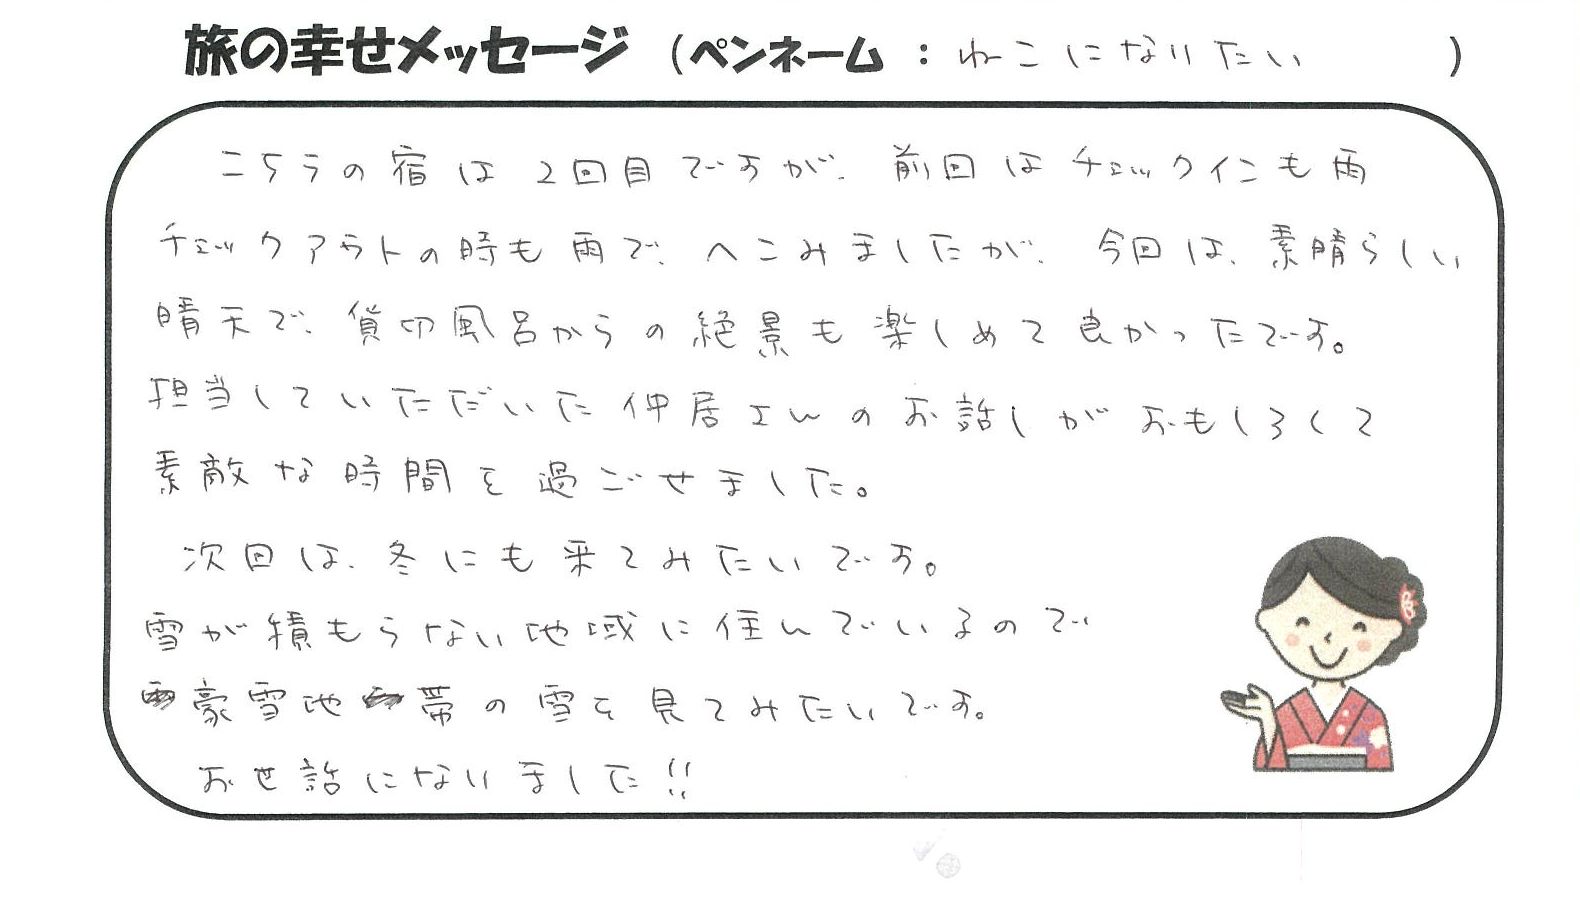 旅の幸せメッセージ （ペンネーム ： ねこになりたい ）
こちらの宿は2回目ですが、前回はチェックインも雨
チェックアウトの時も雨で、へこみましたが、今回は、素晴らしい
晴天で、貸切風呂からの絶景も楽しめて良かったです。
担当していただいた仲居さんのお話しがおもしろくて
素敵な時間を過ごせました。
次回は、冬にも来てみたいです。
雪が積もらない地域に住んでいるので
豪雪地帯の雪を見てみたいです。
お世話になりました!!